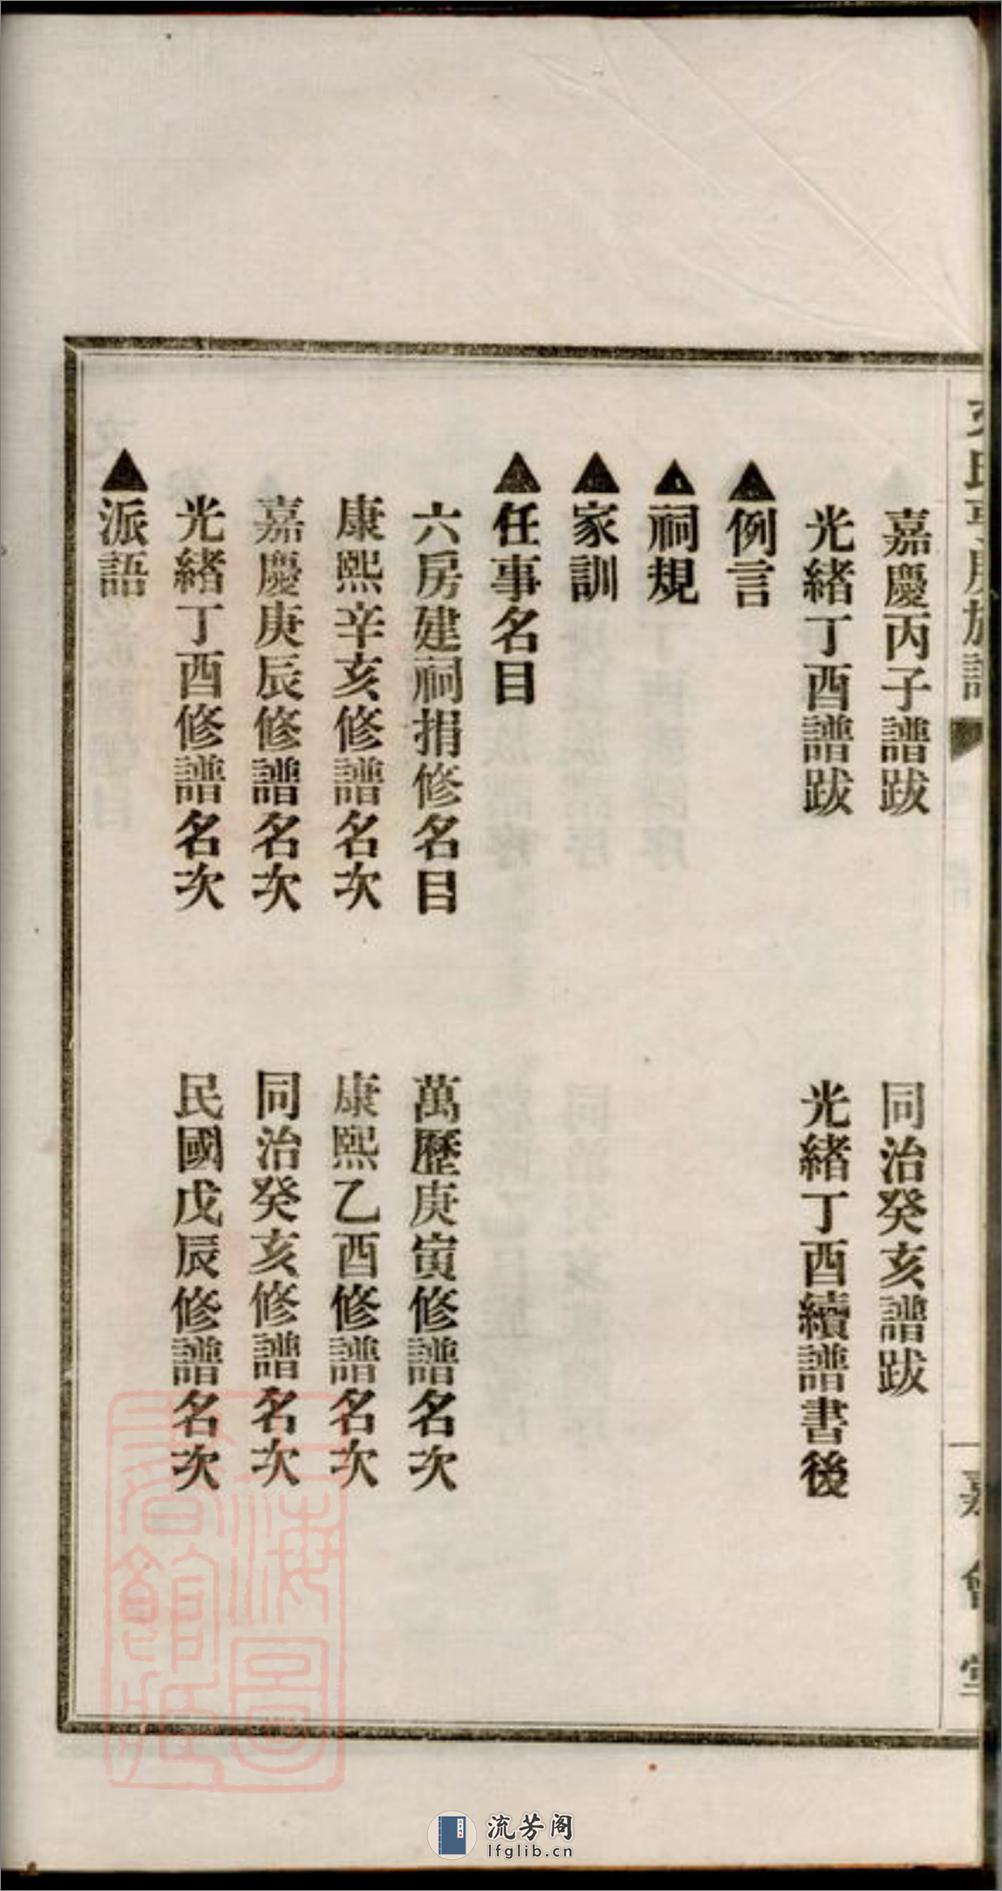 嘉慶丙子譜跋　同治癸亥譜跋
光緒丁酉譜跋　光緒丁酉續譜書後
▲例言
▲祠規
▲家訓
▲任事名目
六房建祠捐修名目　萬歷庚寅修譜名次
康熙辛亥修譜名次　康熙乙酉修譜名次
嘉慶庚辰修譜名次　同治癸亥修譜名次
光緒丁酉修譜名次　民國戊辰修譜名次
▲派語
嘉會堂
上海圖書館藏
流芳阁
lfglib.cn